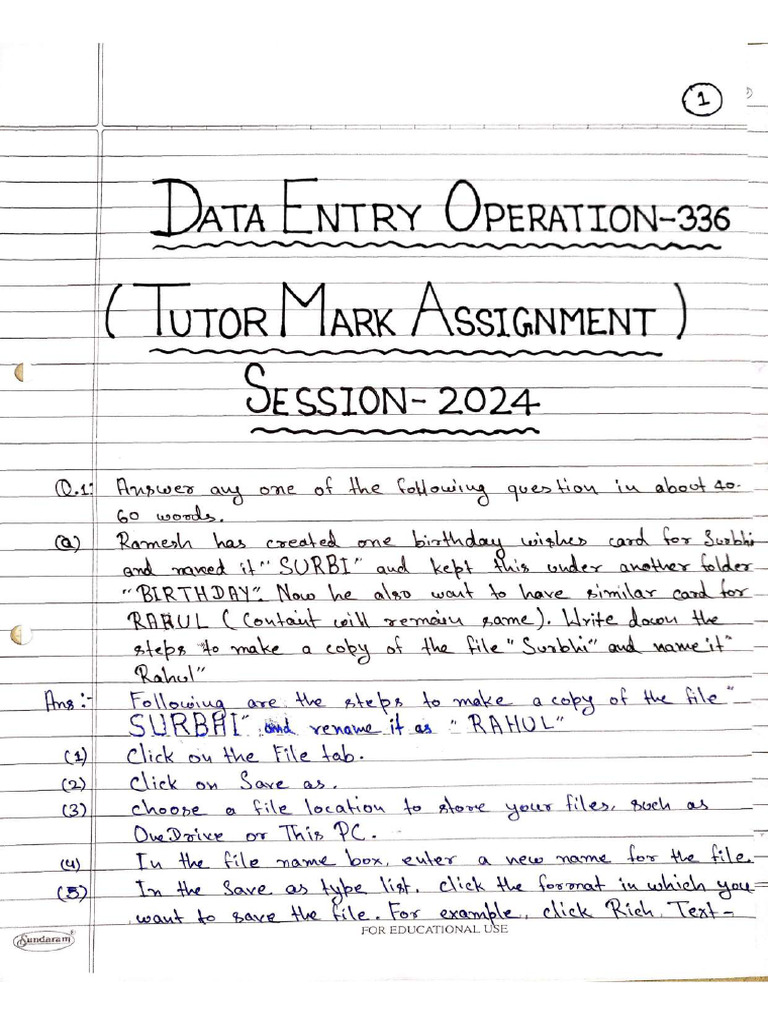 1
DATA ENTRY OPERATION-336
(TUTOR MARK ASSIGNMENT)
SESSION-2024
Q.1: Answer any one of the following question in about 40-
60 words.
(a) Ramesh has created one birthday wishes card for Surbhi
and named it "SURBI" and kept this under another folder
"BIRTHDAY". Now he also want to have similar card for
RAHUL (Containt will remain same). Write down the
steps to make a copy of the file "Surbhi" and name it "
Rahul"
Ans:- Following are the steps to make a copy of the file "
SURBHI" and rename it as "RAHUL"
(1) Click on the File tab.
(2) Click on Save as.
(3) choose a file location to store your files, such as
OneDrive or This PC.
(4) In the file name box, enter a new name for the file.
(5) In the Save as type list, click the format in which you
want to save the file. For example, click Rich Text-
Sundaram
FOR EDUCATIONAL USE